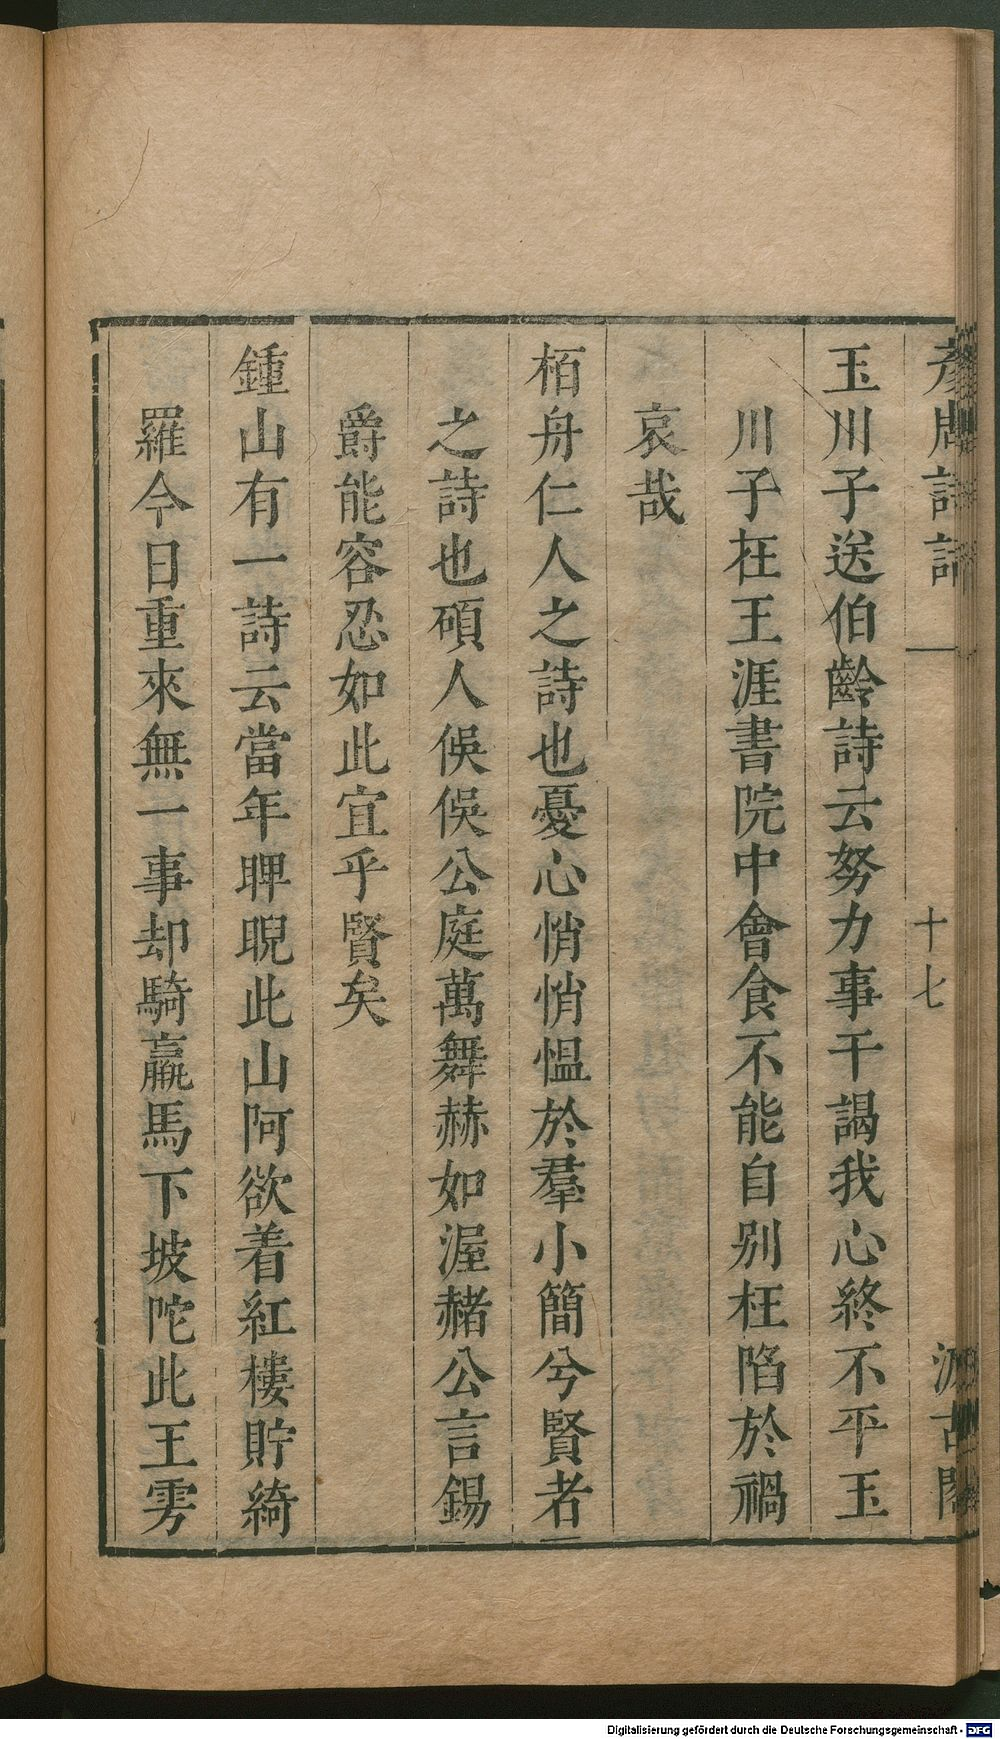 彥周詩話
十七
汲古閣
玉川子送伯齡詩云努力事干謁我心終不平玉
川子在王涯書院中會食不能自别枉陷於禍
哀哉
栢舟仁人之詩也憂心悄悄慍於羣小簡兮賢者
之詩也碩人俁俁公庭萬舞赫如渥赭公言錫
爵能容忍如此宜乎賢矣
鍾山有一詩云當年睥睨此山阿欲着紅樓貯綺
羅今日重來無一事却騎羸馬下坡陀此王雱
Digitalisierung gefördert durch die Deutsche Forschungsgemeinschaft - DFG